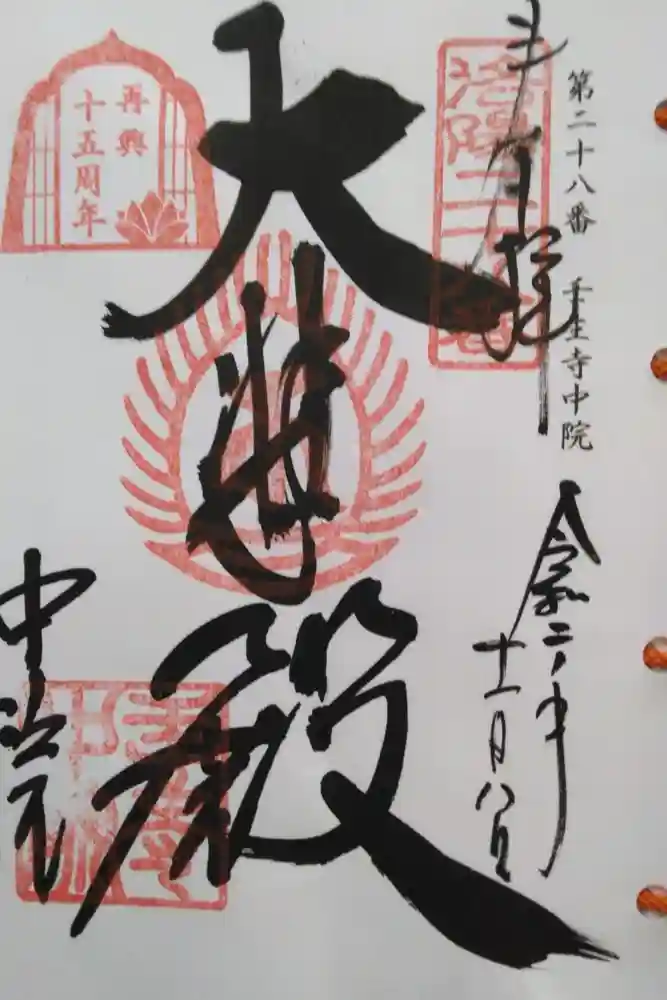 第二十八番 壬生寺中院
奉拝
令和二年
十一月八日
大悲殿
再興
十五周年
中院